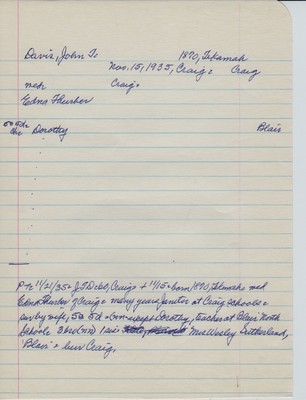 Davis, John T. 1870, Tekamah
Nov. 15, 1935, Craig. Craig
neb Craig.
Edna Thurber
so Ed.
da Dorothy Blair
P-tr 11/21/35= J T D. 60, Craig, + 11/15= born 1870, Tekamah= med
Edna Thurber of Craig= many years janitor at Craig schools=
surv by wife, so Ed = Dorothy, teacher at Blair North
Schools 3 bro(nn) 1 sis Mrs Wesley Sutherland,
Blair = bur Craig.